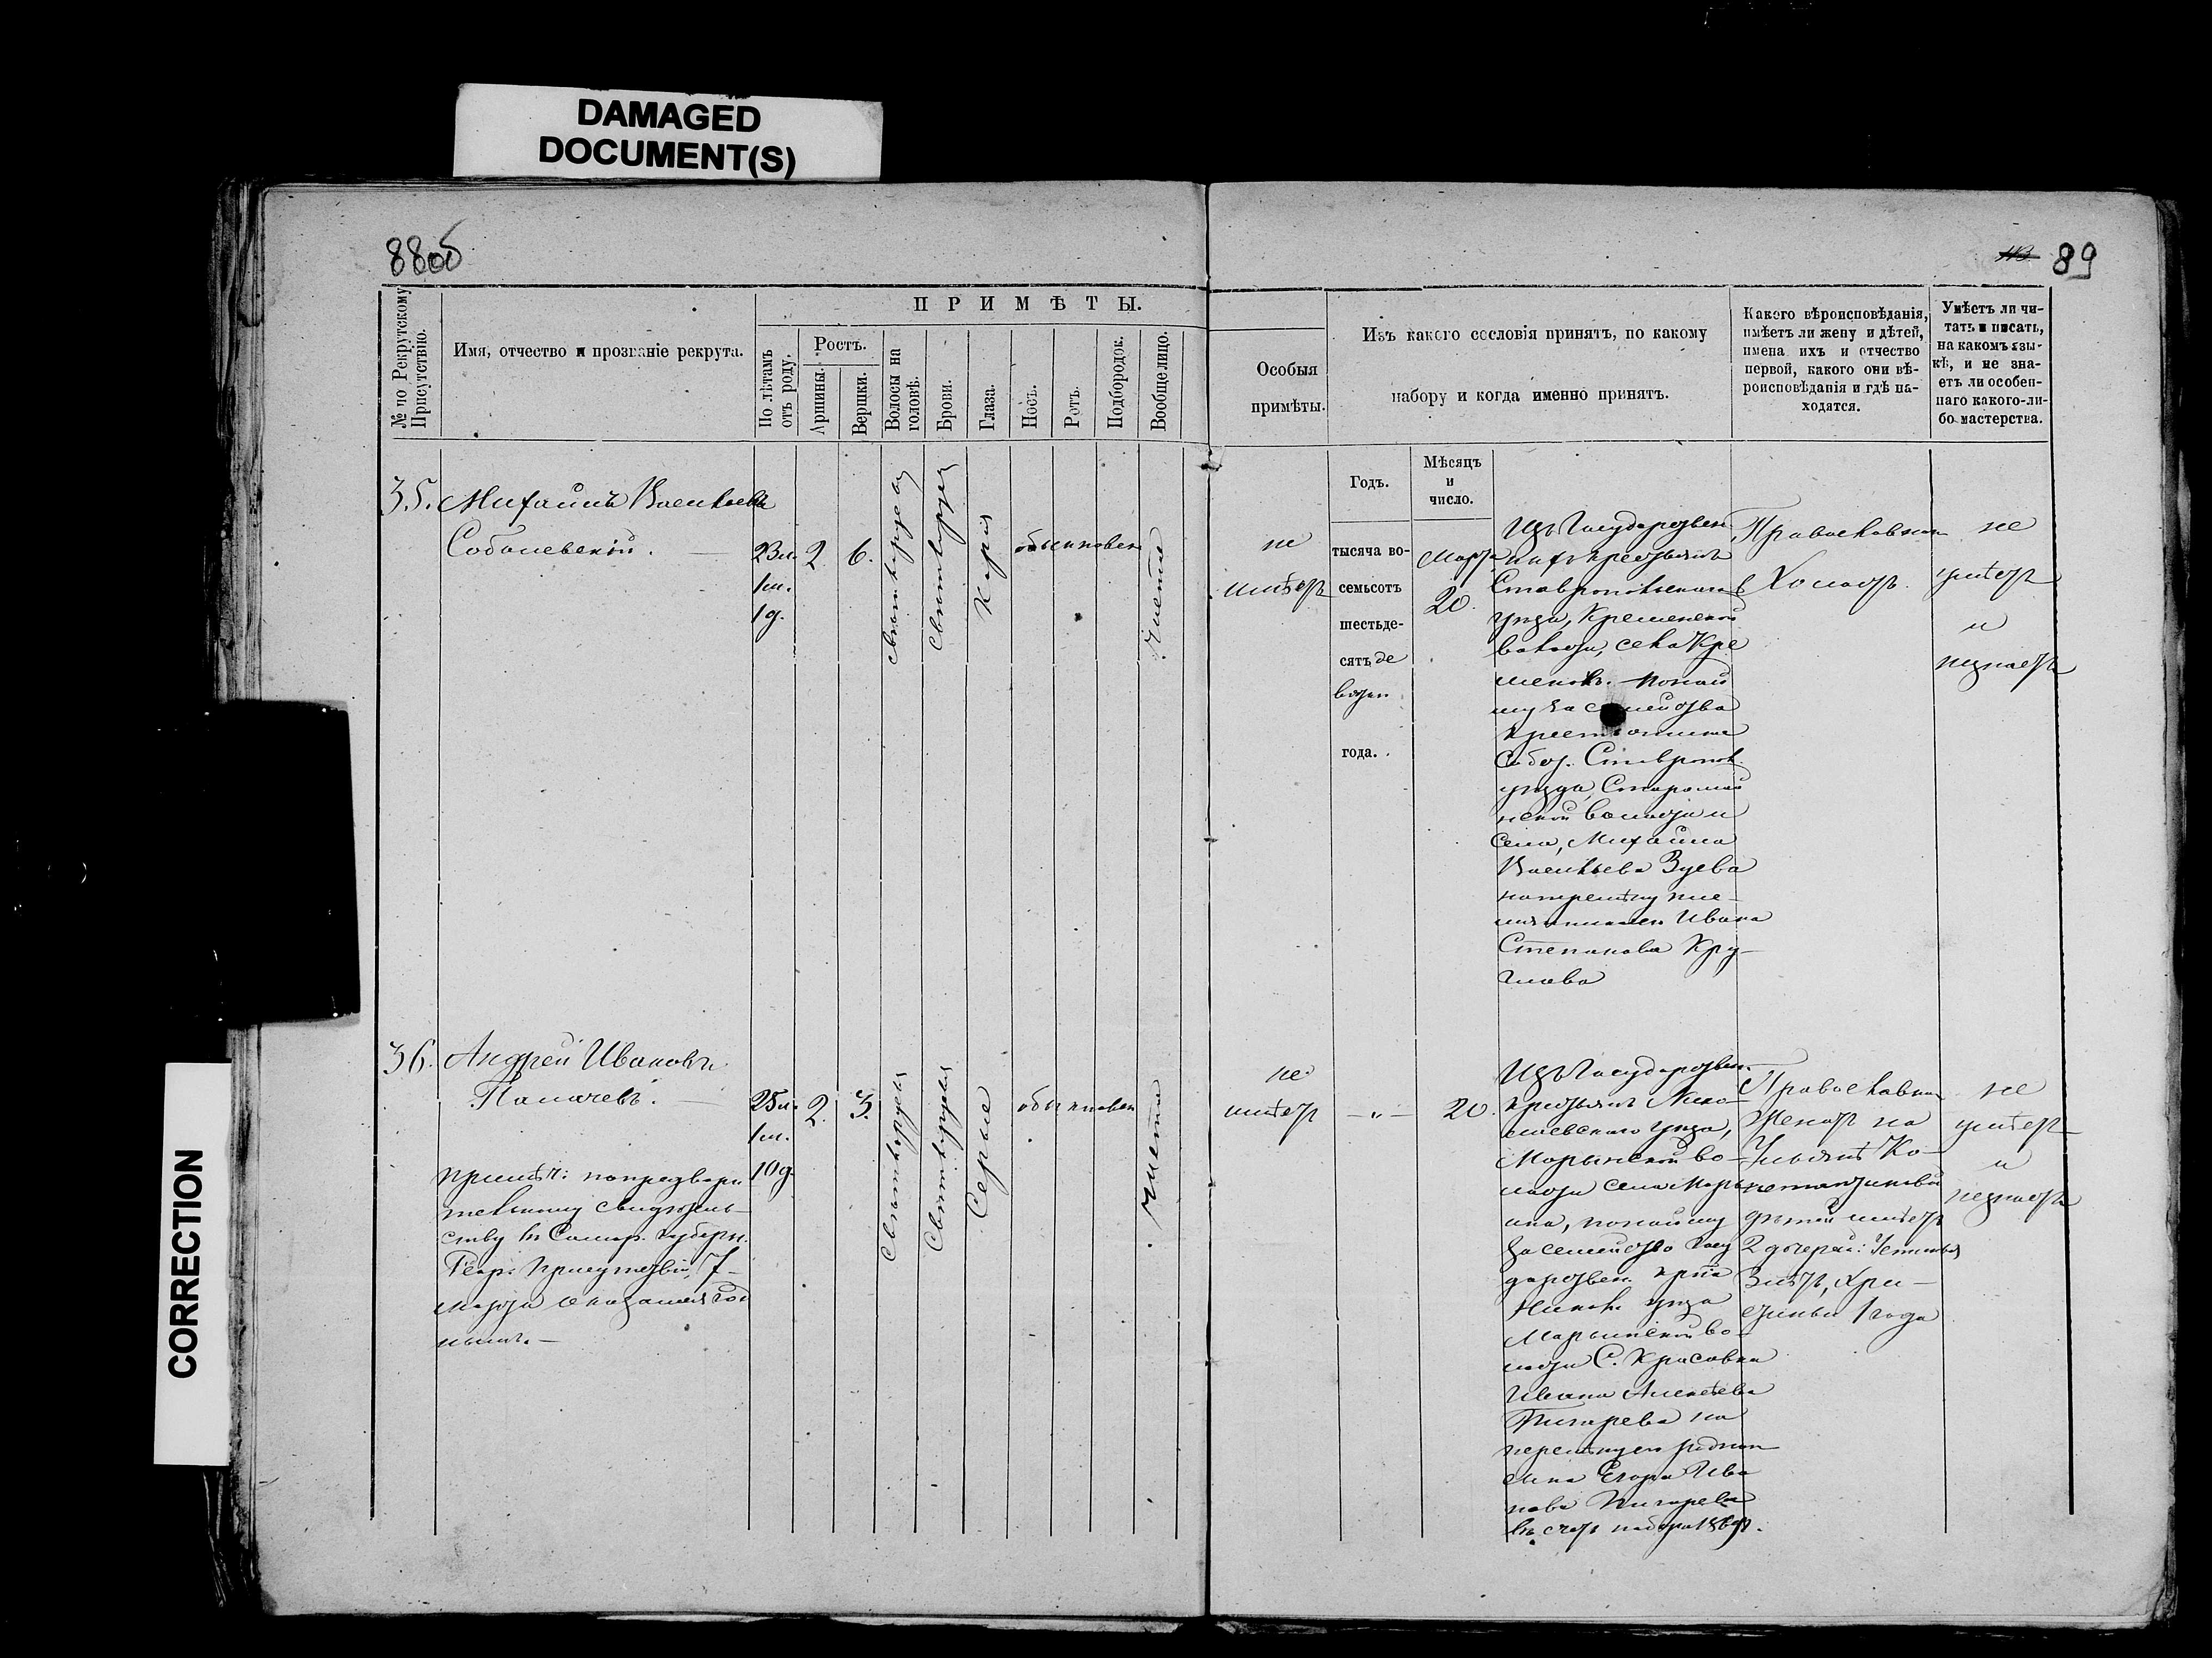 DAMAGED
DOCUMENT(S)
CORRECTION
88об
89
ПРИМѢТЫ.
№ по Рекрутскому
Присутствію.
Имя, отчество и прозваніе рекрута.
По лѣтамъ
отъ роду.
Ростъ.
Аршины.
Вершки.
Волосы на
головѣ.
Брови.
Глаза.
Носъ.
Ротъ.
Подбородок.
Вообще лицо.
Особыя
примѣты.
Изъ какого сословія принятъ, по какому
набору и когда именно принятъ.
Какого вѣроисповѣданія,
имѣетъ ли жену и дѣтей,
имена ихъ и отчество
первой, какого они вѣ-
роисповѣданія и гдѣ на-
ходятся.
Умѣетъ ли чи-
тать и писать,
на какомъ язы-
кѣ, и не зна-
етъ ли особен-
наго какого-ли-
бо мастерства.
Годъ.
Мѣсяцъ
и
число.
35. Михаилъ Васильевъ
Соболевскій.
23 л.
1 м.
1 д.
2
6.
свѣтлорусые
свѣтлорусыя
Каріе
обыкновен
чистое
не
имѣетъ
тысяча во-
семьсотъ
шестьде-
сятъ де
вятый
года.
Марта
20.
Изъ Государствен
ныхъ крестьянъ
Ставропольскаго
уѣзда, Кременской
волости, села Кре
менокъ. По най
му за семейство
крестьянина
собст. Ставропол.
уѣзда, Старомай
нской волости и
села, Михаила
Васильева Зуева
племянника Ивана
Степанова Кру-
глова
Православнаго
Холостъ.
не
умѣетъ
и
незнаетъ
36. Андрей Ивановъ
Палачевъ.
25 л.
1 м.
10 д.
2.
3.
свѣтлорусые
свѣтлорусыя
Серые
обыкновен
чистое
примѣч: по предвари
тельному свидѣтель-
ству въ Самар. Губерн.
Рекр: Присутствіи, 7
марта оказался год
нымъ.
не
имѣетъ
— „ —
20.
Изъ Государствен.
крестьянъ Нико-
лаевскаго уѣзда,
Марьинской во-
лости села Марь
ина, по найму
за семейство Госу
дарствен. крест.
Никол. уѣзда
Марьинской во-
лости С. Красовка
Ивана Алексѣева
Пичарева на
сына Егора Ива
нова Пичарева
въ счетъ набора 1869 г.
Православнаго
Женатъ на
Ульянѣ Ко-
нстантиновой
дѣтей имѣетъ
2 дочерей: Устинья
3 лѣтъ, Хри-
стинья 1 года
не
умѣетъ
и
незнаетъ